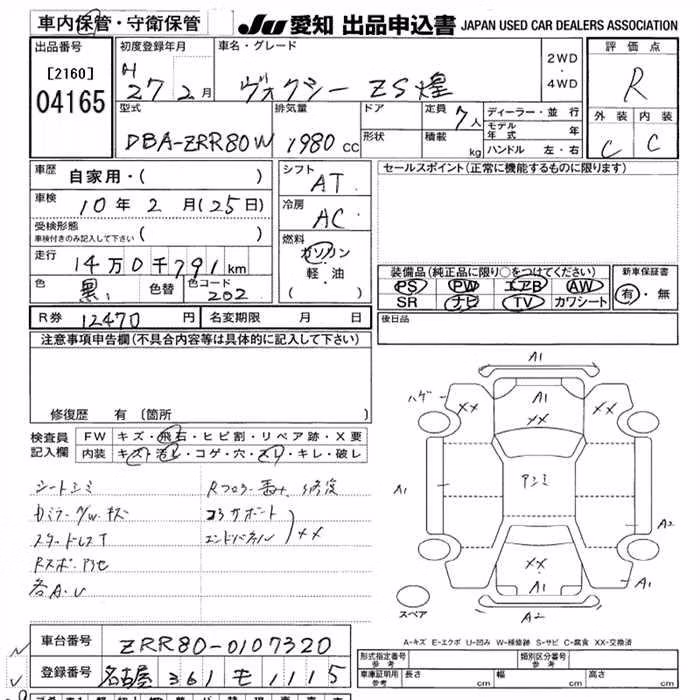 車内保管・守衛保管
JU 愛知 出品申込書 JAPAN USED CAR DEALERS ASSOCIATION
出品番号
[2160]
04165
初度登録年月
H 27 2月
車名・グレード
ヴォクシー ZS 煌
2WD
・
4WD
評価点
R
外装 内装
C C
型式
DBA-ZRR80W
排気量
1980 cc
ドア
形状
定員 7人
積載 kg
ディーラー・並行
モデル年式 年
ハンドル 左・右
車歴 自家用・( )
車検 10年 2月(25日)
受検形態
車検付きのみ記入して下さい ( )
走行 14万0千791km
色 黒 色替 色コード 202
シフト AT
冷房 AC
燃料
ガソリン
・
軽・油
( )
セールスポイント(正常に機能するものに限ります)
装備品(純正品に限り○をつけてください)
PS PW エアB AW
SR ナビ TV カワシート
新車保証書
有・無
R券 12470円 名変期限 月 日
後日品
注意事項申告欄(不具合内容等は具体的に記入して下さい)
修復歴 有 (箇所 )
検査員
記入欄
FW キズ・飛石・ヒビ割・リペア跡・X要
内装 キズ・汚レ・コゲ・穴・スレ・キレ・破レ
シートシミ
スタッドレスT
各A・U
Rフロアー 修復
コアサポート
エンドパネル
XX
A1
ハゲ
XX
A1
XX
XX
A1
テンシミ
A1
A2
XX
A1
A1
A2
スペア
A-キズ E-エクボ U-凹み W-補修跡 S-サビ C-腐食 XX-交換済
車台番号 ZRR80-0107320
登録番号 名古屋 361 モ 1115
形式指定番号 参考
類別区分番号 参考
車庫証明用 参考 長さ cm 幅 cm 高さ cm